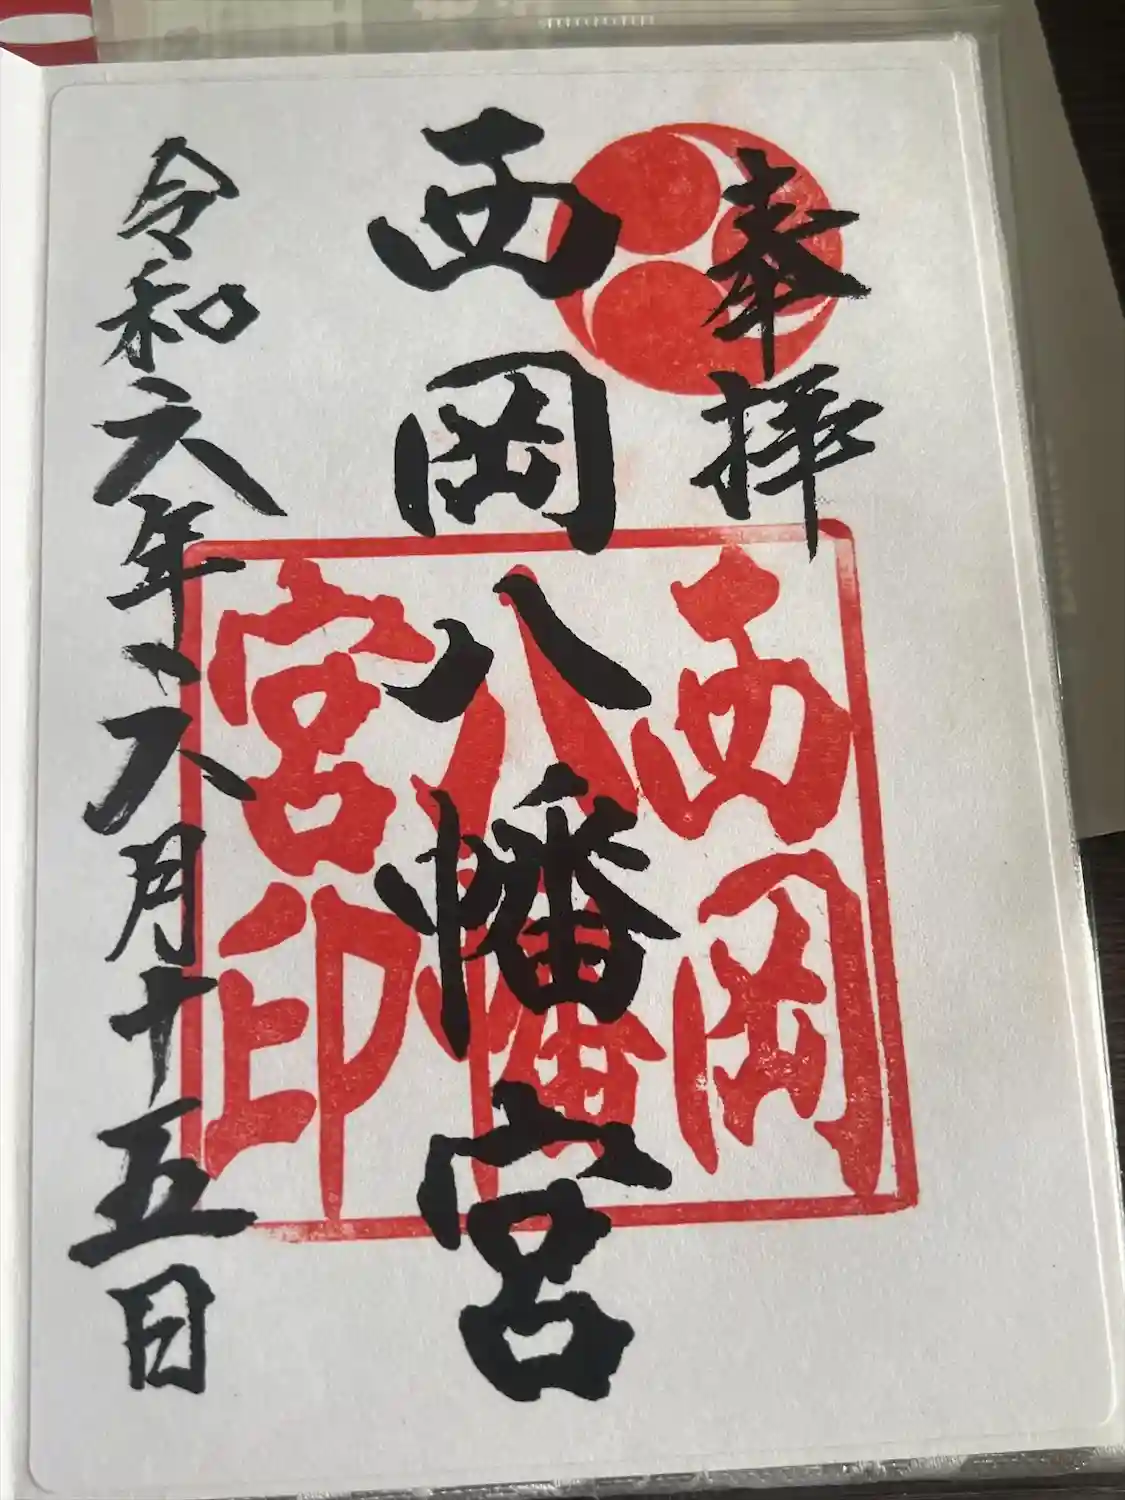 奉拝
西岡八幡宮
西岡
八幡
宮印
令和六年六月十五日